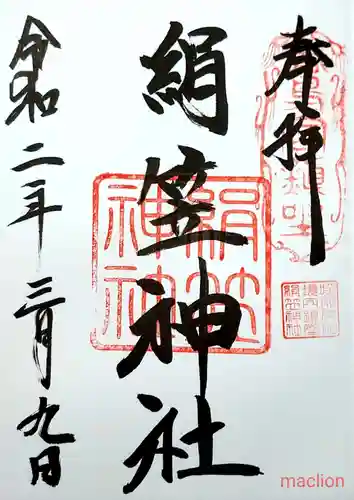 奉拝
絹笠神社
令和二年三月九日
絹笠
神社
maclion